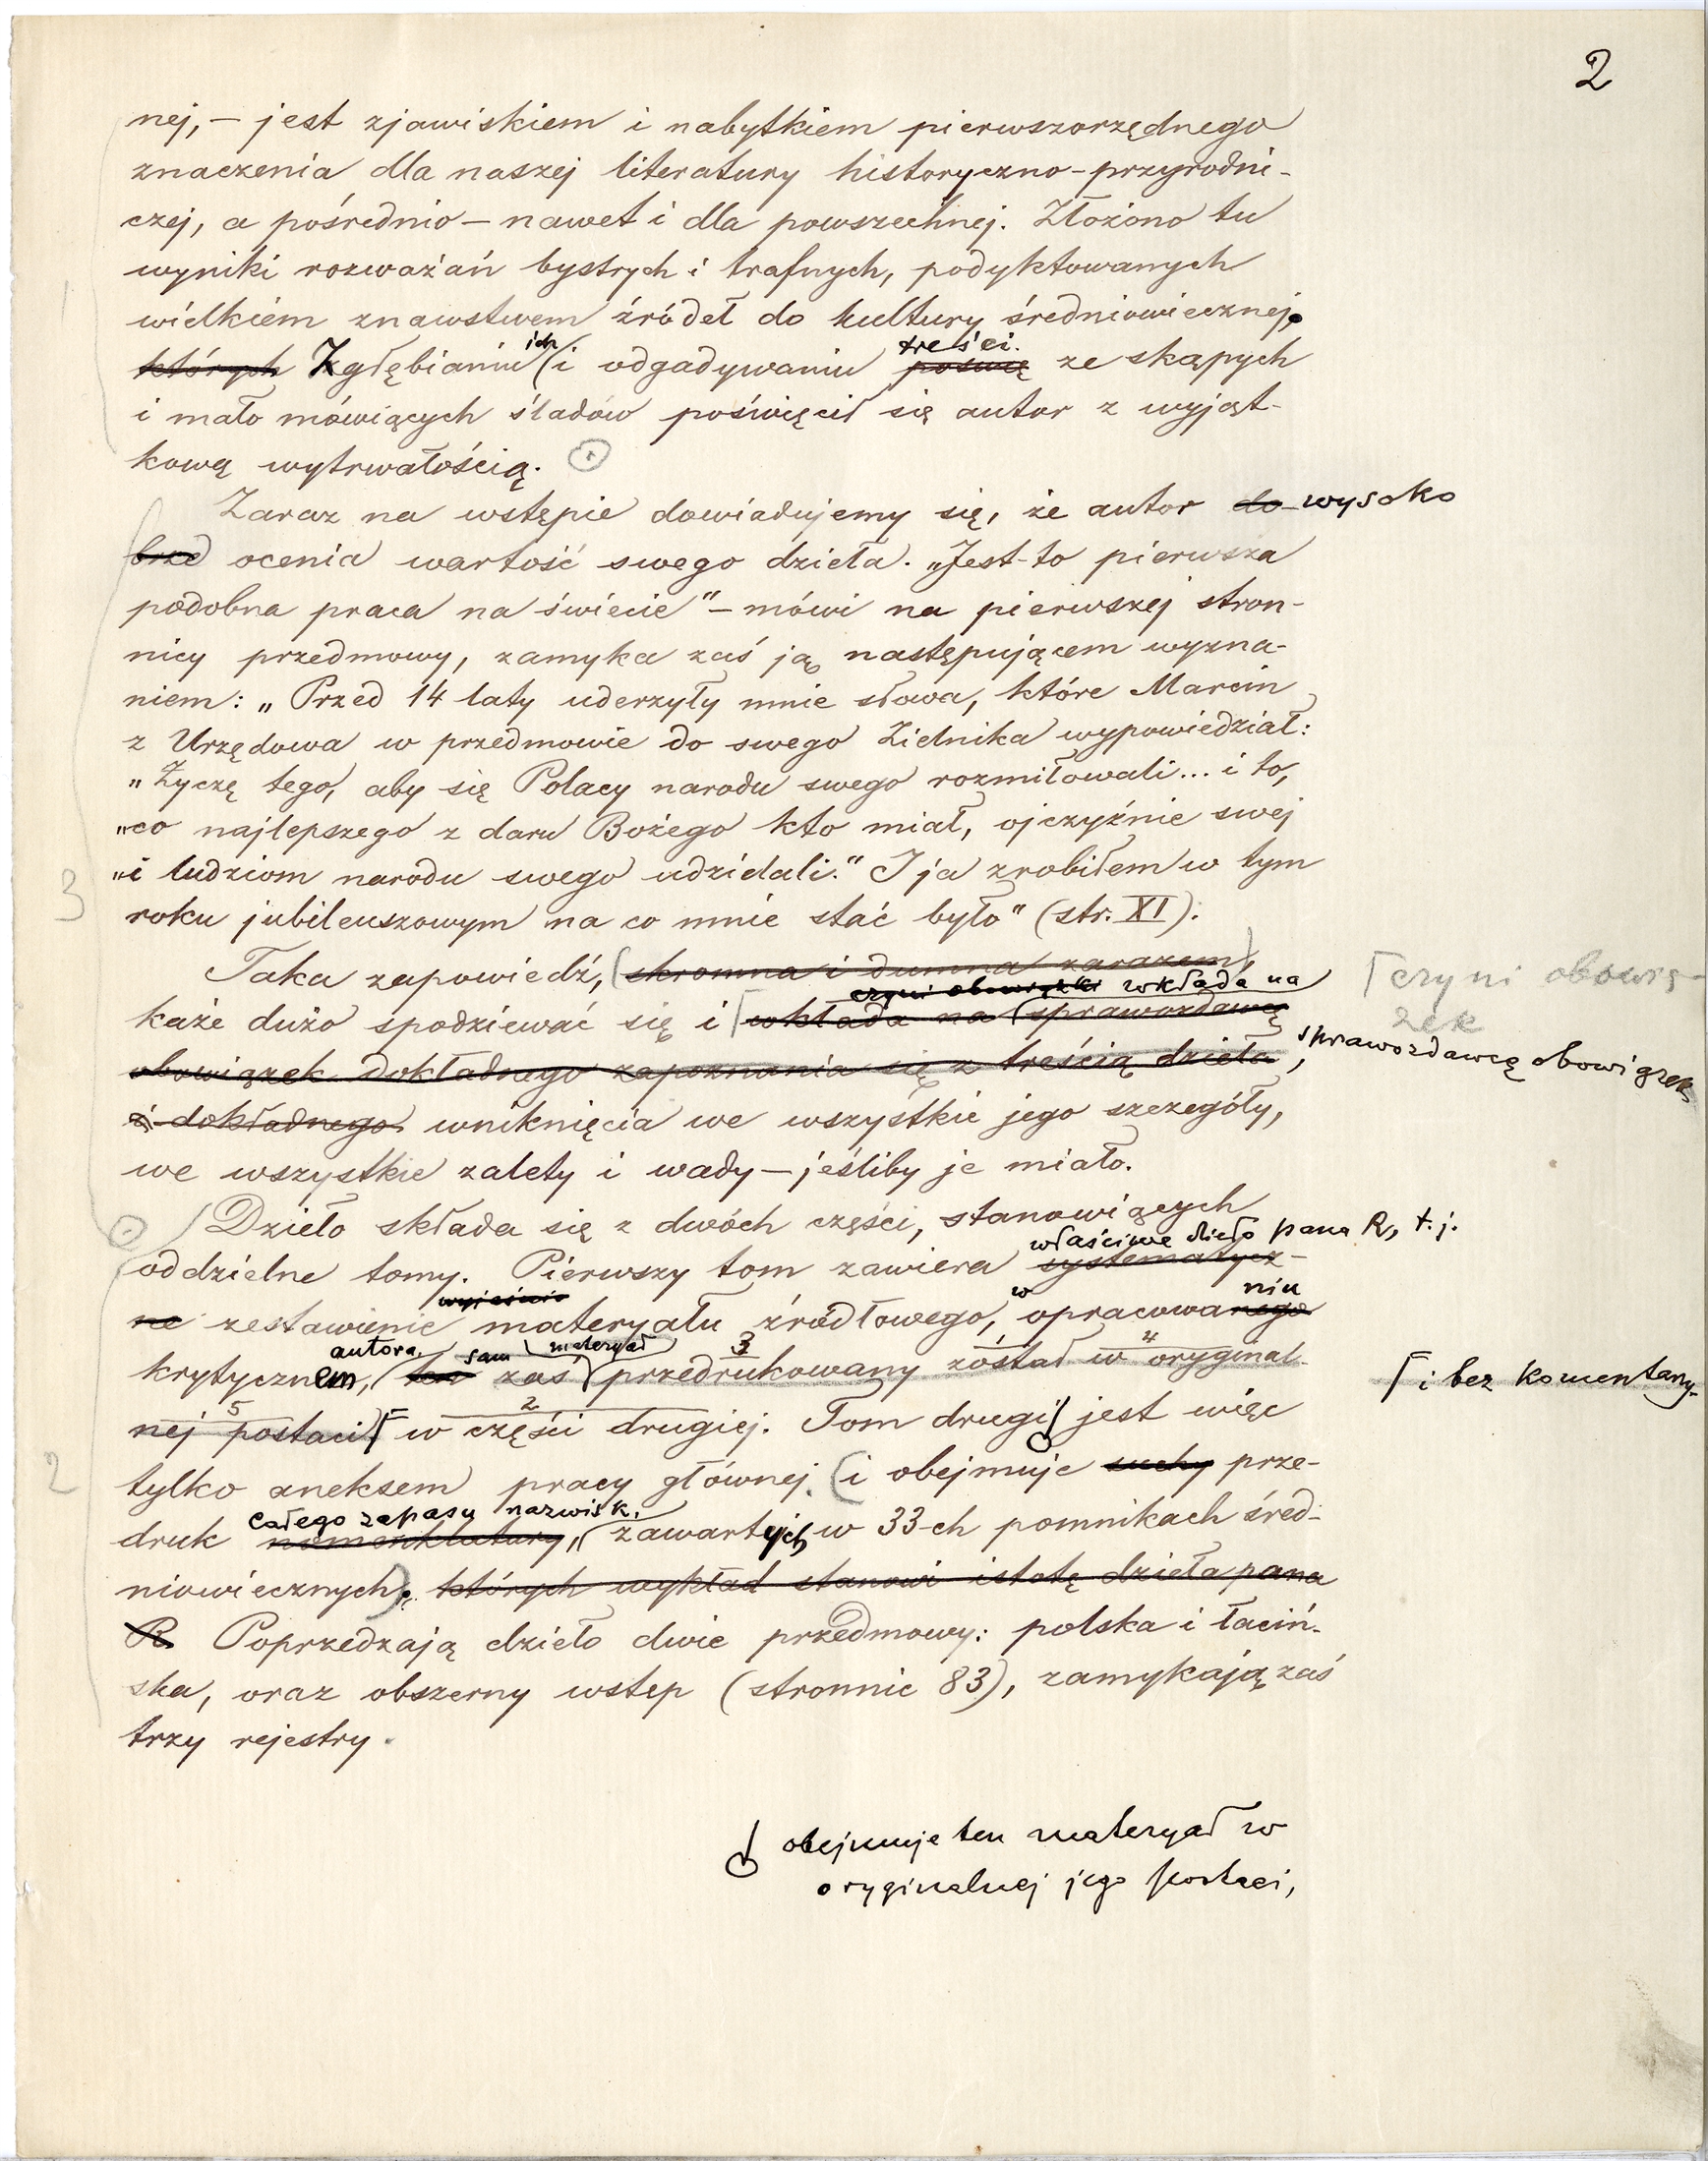 2
nej, – jest zjawiskiem i nabytkiem pierwszorzędnego
znaczenia dla naszej literatury historyczno-przyrodni-
czej, a pośrednio – nawet i dla powszechnej. Złożono tu
wyniki rozważań bystrych i trafnych, podyktowanych
wielkiem znawstwem źródeł do kultury średniowiecznej.
ich treści.
których Zgłębianiu i odgadywaniu ze skąpych
i mało mówiących śladów poświęcił się autor z wyjąt-
kową wytrwałością.
Zaraz na wstępie dowiadujemy się, że autor do wysoko
brze ocenia wartość swego dzieła. „Jest-to pierwsza
podobna praca na świecie" – mówi na pierwszej stron-
nicy przedmowy, zamyka zaś ją następującem wyzna-
niem: „Przed 14 laty uderzyły mnie słowa, które Marcin
z Urzędowa w przedmowie do swego Zielnika wypowiedział:
„Życzę tego, aby się Polacy narodu swego rozmiłowali... i to,
„co najlepszego z daru Bożego kto miał, ojczyźnie swej
„i ludziom narodu swego udzielali." I ja zrobiłem w tym
3
roku jubileuszowym na co mnie stać było" (str. XI).
Taka zapowiedź, (skromna i dumna zarazem),
czyni obowiązki wkłada na
czyni obowią-
zek
każe dużo spodziewać się i wkłada na sprawozdawcę
sprawozdawcę obowiązek
obowiązek dokładnego zapoznania się z treścią dzieła,
i dokładnego wniknięcia we wszystkie jego szczegóły,
we wszystkie zalety i wady – jeśliby je miało.
Dzieło składa się z dwóch części, stanowiących
właściwe dzieło pana R, t. j.
oddzielne tomy. Pierwszy tom zawiera systematycz-
w niu
ne zestawienie materyału źródłowego, opracowanego
autora, sam materyał 3 4
krytycznem, ten zaś przedrukowany został w oryginal-
i bez komentarzy
5 2
nej postaci w części drugiej. Tom drugi jest więc
2
tylko aneksem pracy głównej. (i obejmuje suchy prze-
całego zapasu nazwisk,
druk nomenklatury, zawartych w 33-ch pomnikach śred-
niowiecznych). których wykład stanowi istotę dzieła pana
R. Poprzedzają dzieło dwie przedmowy: polska i łaciń-
ska, oraz obszerny wstęp (stronnic 83), zamykają zaś
trzy rejestry.
obejmuje ten materyał w
oryginalnej jego postaci,